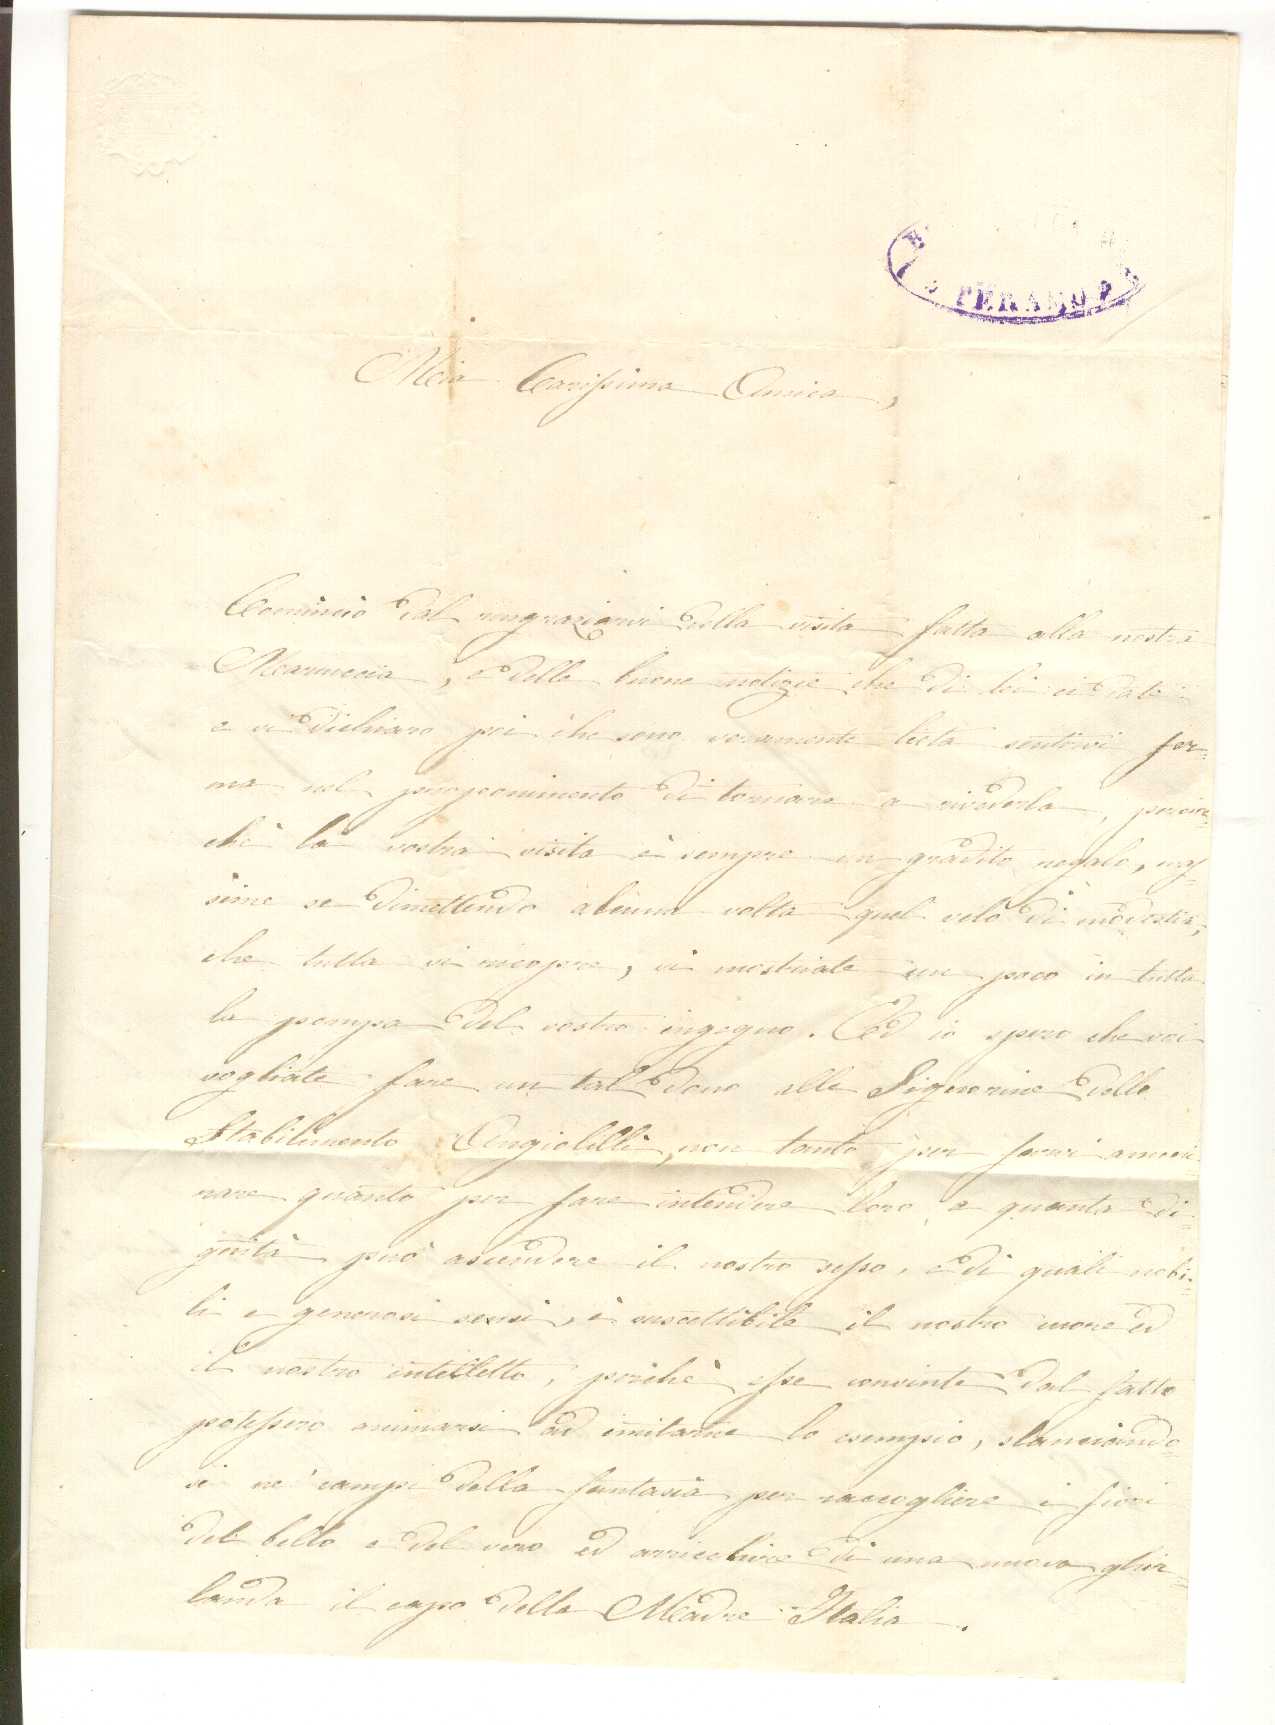 TERAMO
Mia Carissima Amica,
Comincio dal ringraziarvi della visita fatta alla nostra
Mariuccia, e delle buone notizie che di lei ci date:
e vi dichiaro poi che sono veramente lieta sentirvi fer-
ma nel proponimento di tornare a rivederla, percioc-
chè la vostra visita è sempre un gradito regalo, mas-
sime se dimettendo alcuna volta quel velo di modestia,
che tutta vi ricopre, vi mostriate un poco in tutta
la pompa del vostro ingegno. Ed io spero che voi
vogliate fare un tal dono alle Signorine dello
Stabilimento Angiolilli, non tanto per farvi ammi-
rare quanto per fare intendere loro a quanta di-
gnità può ascendere il nostro sesso, e di quali nobi-
li e generosi sensi, è suscettibile il nostro cuore ed
il nostro intelletto, perchè esse convinte dal fatto
potessero animarsi ad imitarne lo esempio, slanciando-
si ne' campi della fantasia per raccogliere i fiori
del bello e del vero ed arricchire di una nuova ghir-
landa il capo della Madre Italia.